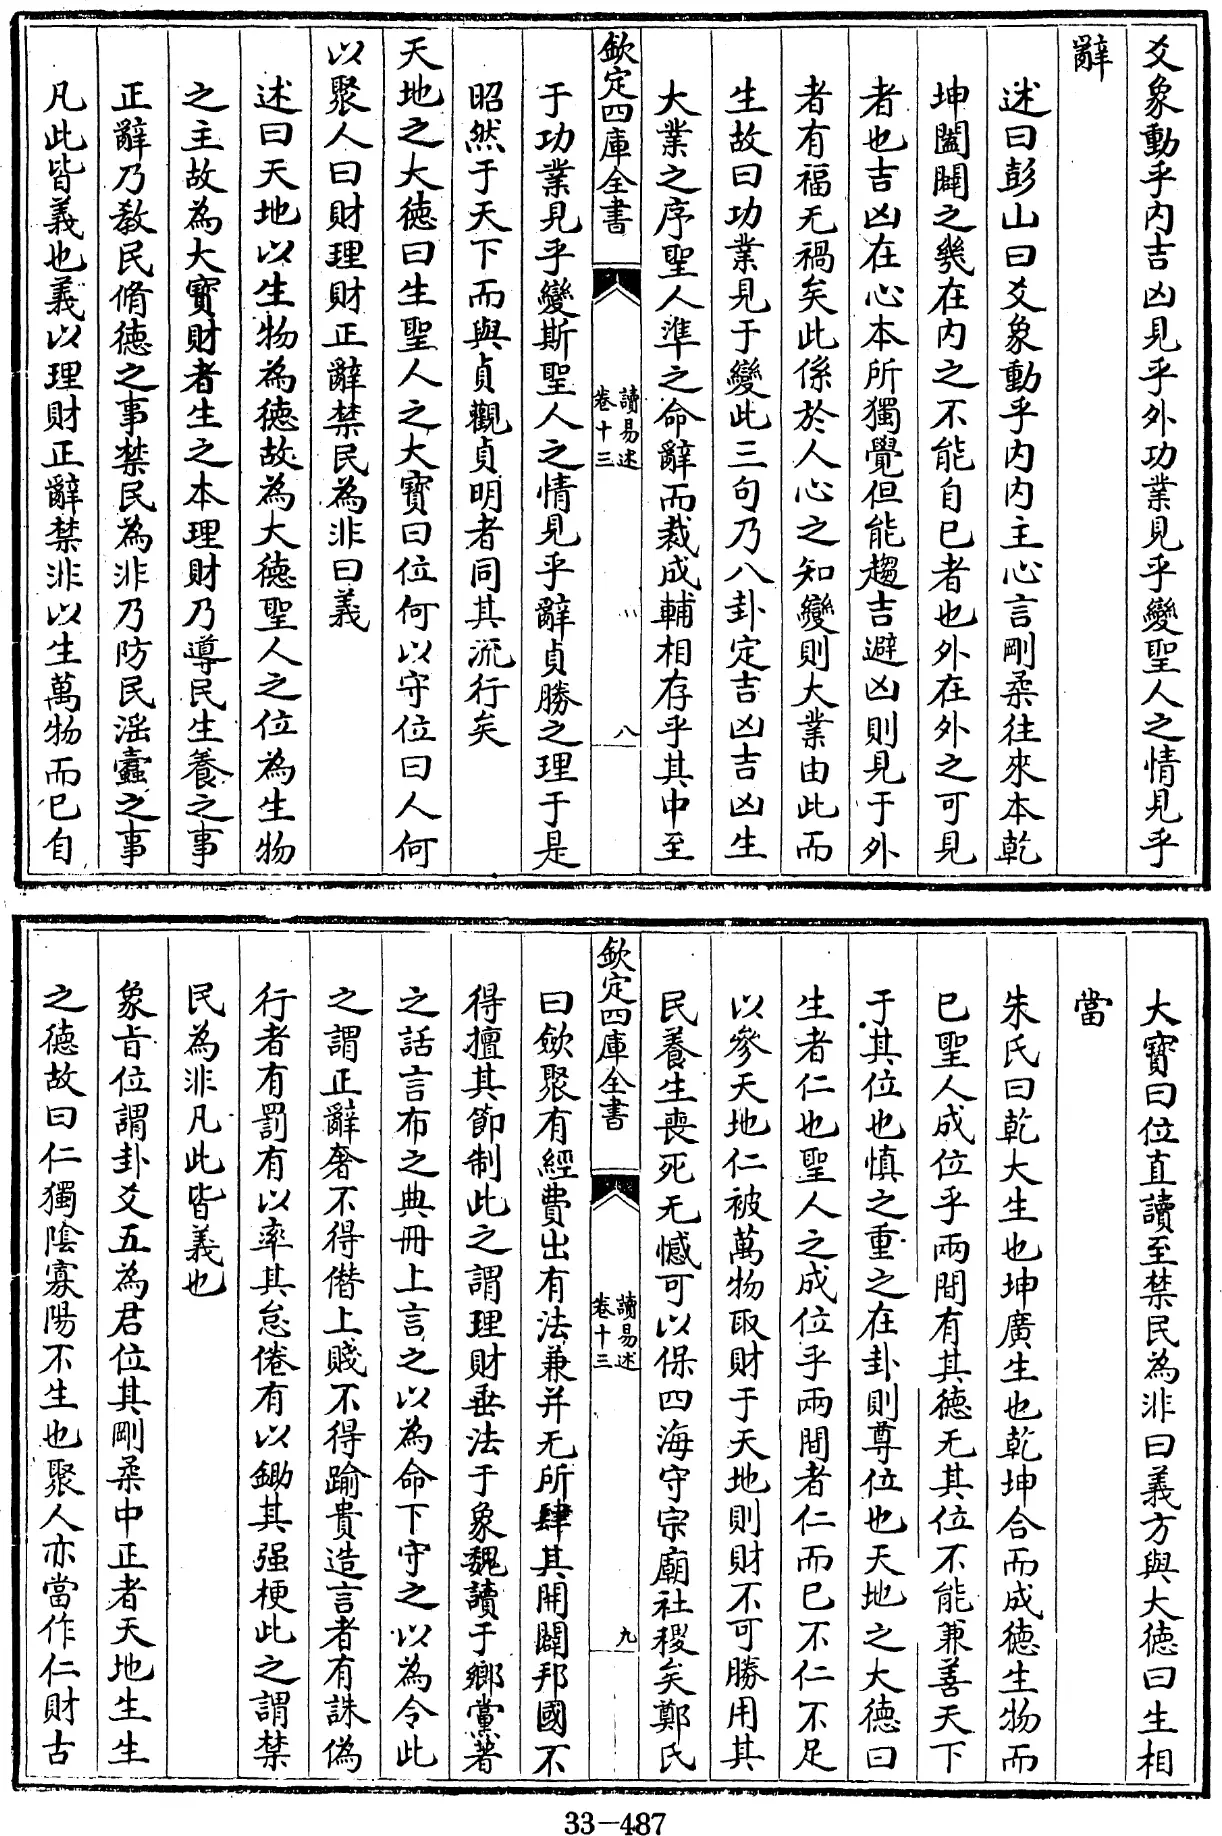 爻象動乎內吉凶見乎外功業見乎變聖人之情見乎
辭
述曰彭山曰爻象動乎內內主心言剛柔往來本乾
坤闔闢之幾在內之不能自已者也外在外之可見
者也吉凶在心本所獨覺但能趨吉避凶則見于外
者有福无禍矣此係於人心之知變則大業由此而
生故曰功業見于變此三句乃八卦定吉凶吉凶生
大業之序聖人準之命辭而裁成輔相存乎其中至
欽定四庫全書
讀易述
卷十三
八
于功業見乎變斯聖人之情見乎辭貞勝之理于是
昭然于天下而與貞觀貞明者同其流行矣
天地之大德曰生聖人之大寳曰位何以守位曰人何
以聚人曰財理財正辭禁民為非曰義
述曰天地以生物為德故為大德聖人之位為生物
之主故為大寳財者生之本理財乃導民生養之事
正辭乃教民脩德之事禁民為非乃防民淫蠹之事
凡此皆義也義以理財正辭禁非以生萬物而已自
大寳曰位直讀至禁民為非曰義方與大德曰生相
當
朱氏曰乾大生也坤廣生也乾坤合而成德生物而
已聖人成位乎兩間有其德无其位不能兼善天下
于其位也慎之重之在卦則尊位也天地之大德曰
生者仁也聖人之成位乎兩間者仁而已不仁不足
以參天地仁被萬物取財于天地則財不可勝用其
民養生喪死无憾可以保四海守宗廟社稷矣鄭氏
欽定四庫全書
讀易述
卷十三
九
曰斂聚有經費出有法兼并无所肆其開闢邦國不
得擅其節制此之謂理財垂法于象魏讀于鄉黨著
之話言布之典冊上言之以為命下守之以為令此
之謂正辭奢不得僭上賤不得踰貴造言者有誅偽
行者有罰有以率其怠倦有以鋤其强梗此之謂禁
民為非凡此皆義也
象旨位謂卦爻五為君位其剛柔中正者天地生生
之德故曰仁獨陰寡陽不生也聚人亦當作仁財古
33-487